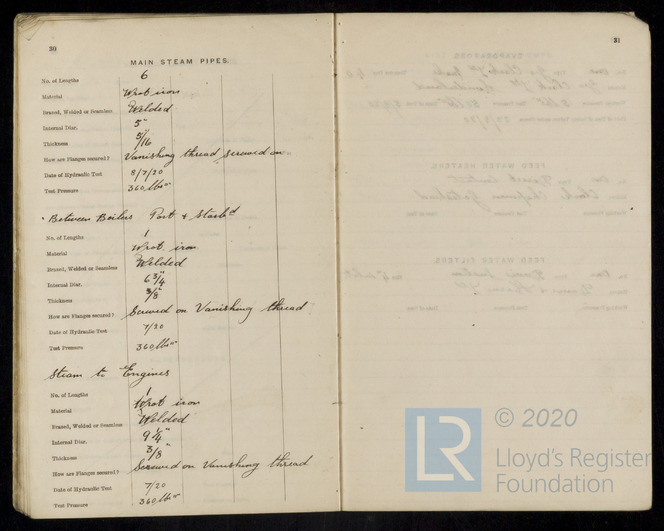 30
MAIN STEAM PIPES.
No. of Lengths 6
Material Wrot iron
Brazed, Welded or Seamless Welded
Internal Diar. 5"
Thickness 5/16
How are Flanges secured? Vanishing thread screwed on
Date of Hydraulic Test 8/7/20
Test Pressure 360 lbs
Between Boilers Port & Starbd
No. of Lengths 1
Material Wrot. iron
Brazed, Welded or Seamless Welded
Internal Diar. 6 3/4"
Thickness 3/8"
How are Flanges secured? Screwed on Vanishing thread
Date of Hydraulic Test 7/20
Test Pressure 360 lbs
Steam to Engines
No. of Lengths 1
Material Wrot iron
Brazed, Welded or Seamless Welded
Internal Diar. 9 1/4"
Thickness 3/8"
How are Flanges secured? Screwed on Vanishing thread
Date of Hydraulic Test 7/20
Test Pressure 360 lbs
31
LR
© 2020
Lloyd's Register
Foundation